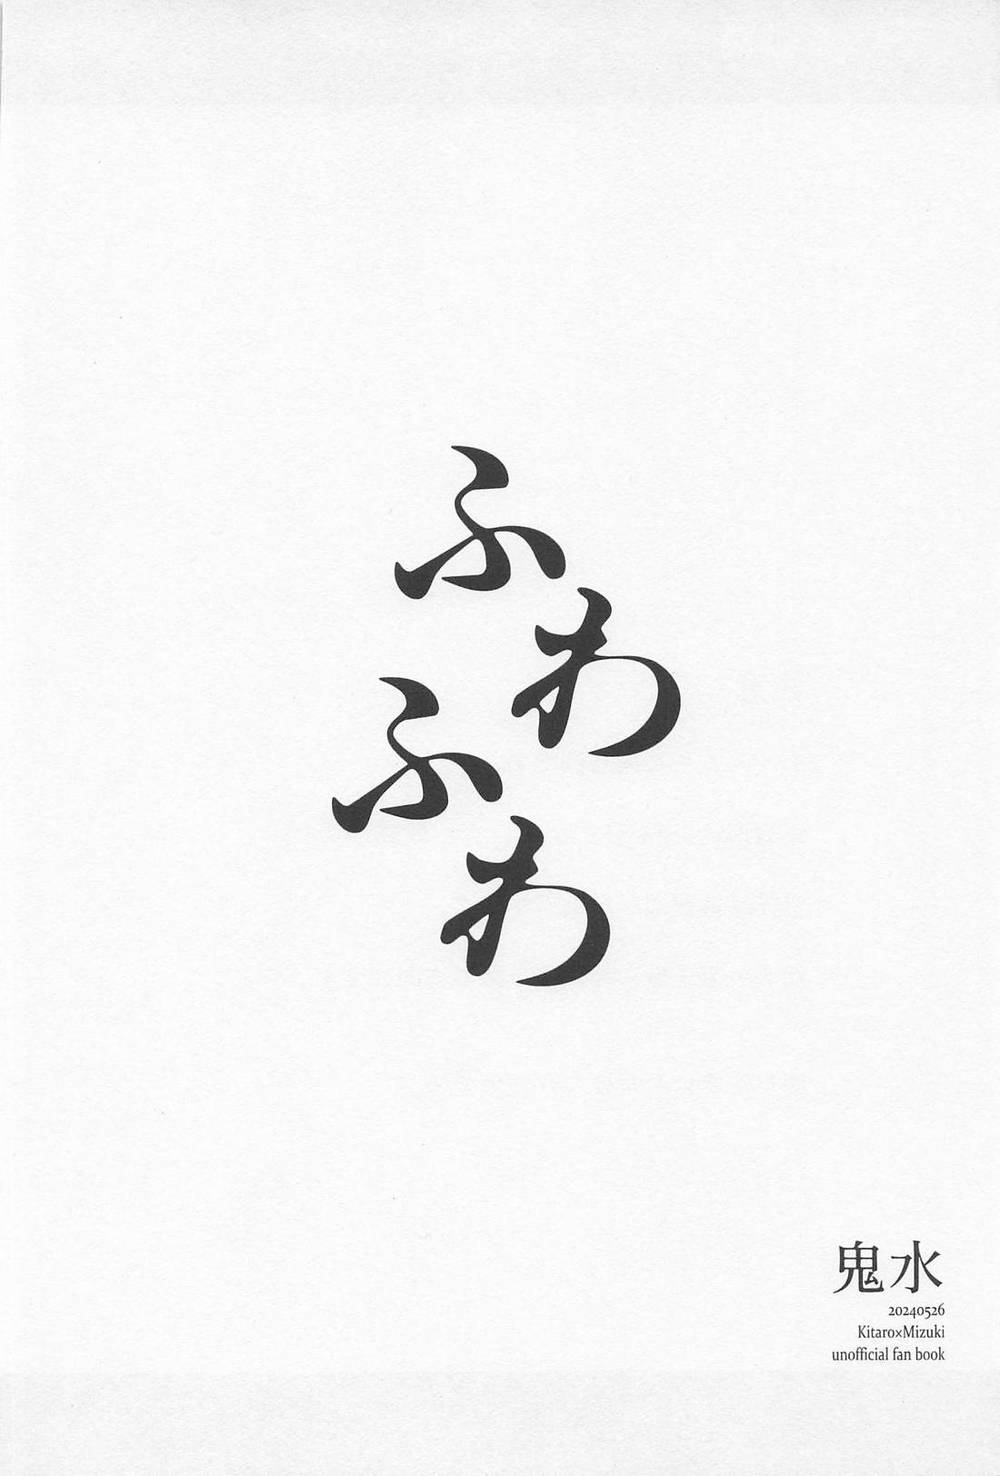 ふわ
ふわ
鬼水
20240526
Kitaro×Mizuki
unofficial fan book